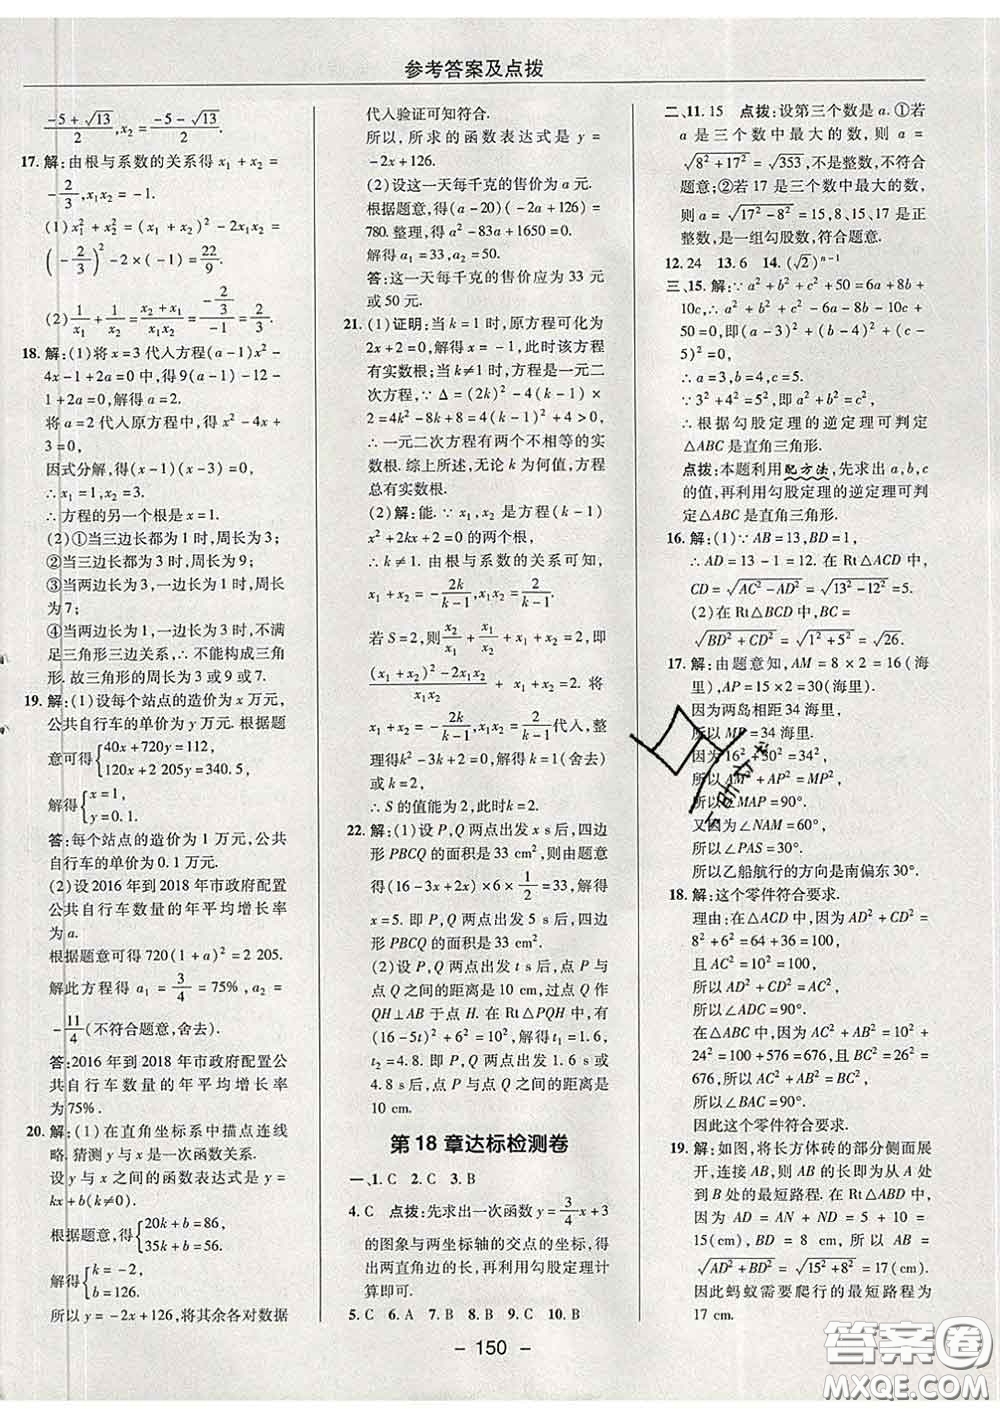 参考答案及点拨
(-5+√13)/2, x₂=(-5-√13)/2.
17. 解:由根与系数的关系得 x₁+x₂=
-2/3, x₁x₂=-1.
(1) x₁²+x₂²=(x₁+x₂)²-2x₁x₂=
(-2/3)²-2×(-1)=22/9.
(2) 1/x₁+1/x₂=(x₂+x₁)/(x₁x₂)=(-2/3)/(-1)=2/3.
18. 解:(1)将 x=3 代入方程(a-1)x²-
4x-1+2a=0 中,得 9(a-1)-12-
1+2a=0,解得 a=2.
将 a=2 代入原方程中,得 x²-4x+
3=0,
因式分解,得(x-1)(x-3)=0,
∴x₁=1,x₂=3.
∴方程的另一个根是 x=1.
(2)①当三边长都为 1 时,周长为 3;
②当三边长都为 3 时,周长为 9;
③当两边长为 3,一边长为 1 时,周长
为 7;
④当两边长为 1,一边长为 3 时,不满
足三角形三边关系,∴不能构成三角
形.故三角形的周长为 3 或 9 或 7.
19. 解:(1)设每个站点的造价为 x 万元,
公共自行车的单价为 y 万元.根据题
意可得{40x+720y=112,
120x+2 205y=340.5,
解得{x=1,
y=0.1.
答:每个站点的造价为 1 万元,公共
自行车的单价为 0.1 万元.
(2)设 2016 年到 2018 年市政府配置
公共自行车数量的年平均增长率
为 a.
根据题意可得 720(1+a)²=2 205.
解此方程得 a₁=3/4=75%, a₂=
-11/4(不符合题意,舍去).
答:2016 年到 2018 年市政府配置公
共自行车数量的年平均增长率
为 75%.
20. 解:(1)在直角坐标系中描点连线
略,猜测 y 与 x 是一次函数关系.
设 y 与 x 之间的函数表达式是 y=
kx+b(k≠0).
根据题意,得{20k+b=86,
35k+b=56.
解得{k=-2,
b=126.
所以 y=-2x+126,将其余各对数据
代入验证可知符合.
所以,所求的函数表达式是 y=
-2x+126.
(2)设这一天每千克的售价为 a 元.
根据题意,得(a-20)(-2a+126)=
780.整理,得 a²-83a+1650=0.
解得 a₁=33,a₂=50.
答:这一天每千克的售价应为 33 元
或 50 元.
21. (1)证明:当 k=1 时,原方程可化为
2x+2=0,解得 x=-1,此时该方程
有实数根;当 k≠1 时,方程是一元二
次方程,∵Δ=(2k)²-4(k-1)×
2=4k²-8k+8=4(k-1)²+4>0,
∴一元二次方程有两个不相等的实
数根.综上所述,无论 k 为何值,方程
总有实数根.
(2)解:能.∵x₁,x₂ 是方程(k-1)
x²+2kx+2=0 的两个根,
∴k≠1.由根与系数的关系可知,
x₁+x₂=-2k/(k-1), x₁x₂=2/(k-1).
若 S=2,则 x₂/x₁+x₁/x₂+x₁+x₂=2,即
((x₁+x₂)²-2x₁x₂)/(x₁x₂)+x₁+x₂=2. 将
x₁+x₂=-2k/(k-1), x₁x₂=2/(k-1)代入,整
理得 k²-3k+2=0,解得 k=1(舍去)
或 k=2.
∴S 的值能为 2,此时 k=2.
22. 解:(1)设 P,Q 两点出发 x s 后,四边
形 PBCQ 的面积是 33 cm²,则由题意
得(16-3x+2x)×6×1/2=33,解得
x=5.即 P,Q 两点出发 5 s 后,四边
形 PBCQ 的面积是 33 cm².
(2)设 P,Q 两点出发 t s 后,点 P 与
点 Q 之间的距离是 10 cm,过点 Q 作
QH⊥AB 于点 H.在 Rt△PQH 中,有
(16-5t)²+6²=10²,解得 t₁=1.6,
t₂=4.8.即 P,Q 两点出发 1.6 s 或
4.8 s 后,点 P 与点 Q 之间的距离是
10 cm.
第 18 章达标检测卷
一、1. C 2. C 3. B
4. C 点拨:先求出一次函数 y=3/4x+3
的图象与两坐标轴的交点的坐标,得
出两直角边的长,再利用勾股定理计
算即可.
5. C 6. A 7. B 8. B 9. C 10. B
二、11. 15 点拨:设第三个数是 a.①若
a 是三个数中最大的数,则 a=
√(8²+17²)=√353,不是整数,不符合
题意;②若 17 是三个数中最大的数,
则 a=√(17²-8²)=15,8、15、17 是正
整数,是一组勾股数,符合题意.
12. 24 13. 6 14. (√2)ⁿ⁻¹
三、15. 解:∵a²+b²+c²+50=6a+8b+
10c,∴a²+b²+c²-6a-8b-10c+
50=0,即(a-3)²+(b-4)²+(c-
5)²=0.
∴a=3,b=4,c=5.
∵3²+4²=5²,即 a²+b²=c²,
∴根据勾股定理的逆定理可判定
△ABC 是直角三角形.
点拨:本题利用配方法,先求出 a,b,c
的值,再利用勾股定理的逆定理可判
定△ABC 是直角三角形.
16. 解:(1)∵AB=13,BD=1,
∴AD=13-1=12.在 Rt△ACD 中,
CD=√(AC²-AD²)=√(13²-12²)=5.
(2)在 Rt△BCD 中,BC=
√(BD²+CD²)=√(1²+5²)=√26.
17. 解:由题意知,AM=8×2=16(海
里),AP=15×2=30(海里).
因为两岛相距 34 海里,
所以 MP=34 海里.
因为 16²+30²=34²,
所以 AM²+AP²=MP²,
所以∠MAP=90°.
又因为∠NAM=60°,
所以∠PAS=30°.
所以乙船航行的方向是南偏东 30°.
18. 解:这个零件符合要求.
理由:在△ACD 中,因为 AD²+CD²=
8²+6²=64+36=100,
且 AC²=10²=100,
所以 AD²+CD²=AC².
所以∠ADC=90°.
在△ABC 中,因为 AC²+AB²=10²+
24²=100+576=676,BC²=26²=
676,所以 AC²+AB²=BC².
所以∠BAC=90°.
因此这个零件符合要求.
19. 解:如图,将长方体砖的部分侧面展
开,连接 AB,则 AB 的长即为从 A 处
到 B 处的最短路程.在 Rt△ABD 中,
因为 AD=AN+ND=5+10=
15(cm),BD=8 cm,所以 AB=
√(AD²+BD²)=√(15²+8²)=17(cm).
因此蚂蚁需要爬行的最短路程为
17 cm.
- 150 -
答案卷
MXQE.COM